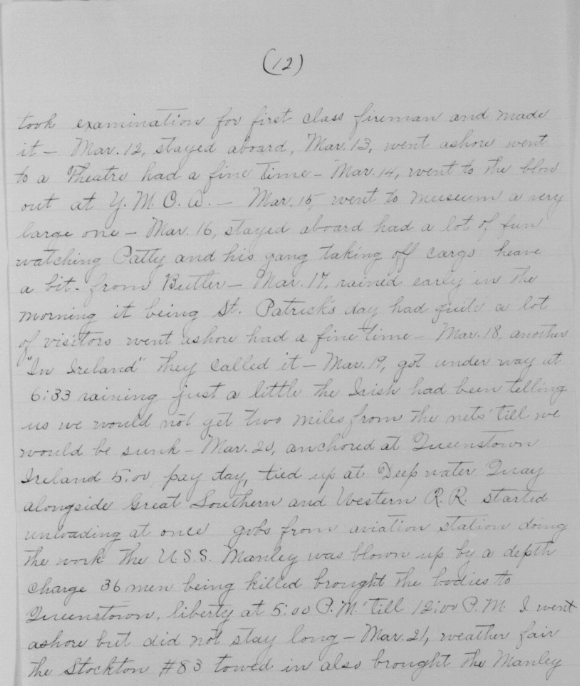 (12)
took examination for first class fireman and made
it – Mar. 12, stayed aboard, Mar. 13, went ashore went
to a Theatre had a fine time – Mar. 14, went to the blow
out at Y. M. C. A. – Mar. 15, went to museum a very
large one – Mar. 16, stayed aboard had a lot of fun
watching Patty and his gang taking off cargo heave
a bit. from Butler – Mar. 17, rained early in the
morning it being St. Patrick's day had quite a lot
of visitors went ashore had a fine time – Mar. 18, another
"In Ireland" they called it – Mar. 19, got under way at
6:33 raining just a little the Irish had been telling
us we would not get two miles from the nets till we
would be sunk – Mar. 20, anchored at Queenstown
Ireland 5:00, pay day, tied up at Deep water Quay
alongside Great Southern and Western R.R. started
unloading at once gobs from aviation station doing
the work the U.S.S. Manley was blown up by a depth
charge 36 men being killed brought the bodies to
Queenstown, liberty at 5:00 P.M. till 12:00 P.M. I went
ashore but did not stay long – Mar. 21, weather fair
the Stockton #83 towed in also brought the Manley